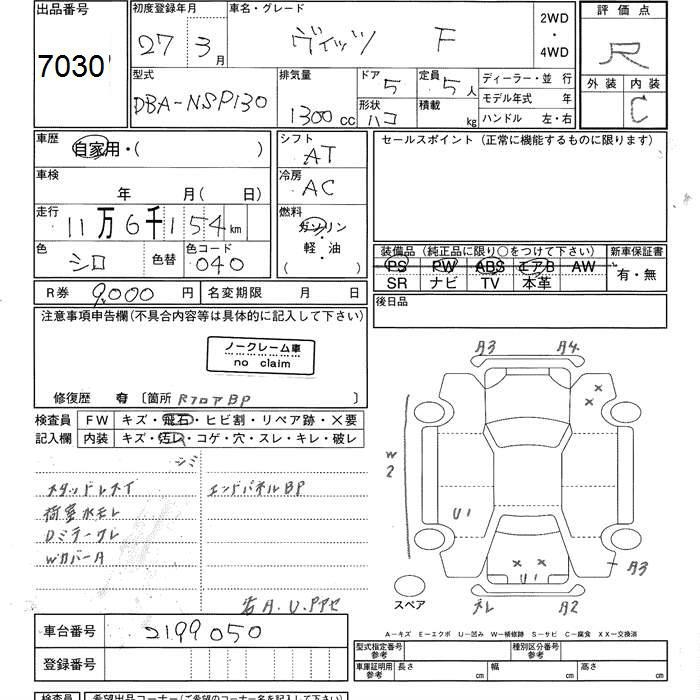 出品番号
7030
初度登録年月
27 3月
車名・グレード
ヴィッツ F
2WD
・
4WD
評価点
R
外装 内装
C
型式
DBA-NSP130
排気量
1300cc
ドア 5
形状 ハコ
定員 5人
積載 kg
ディーラー・並行
モデル年式 年
ハンドル 左・右
車歴
自家用・( )
シフト
AT
セールスポイント (正常に機能するものに限ります)
車検
年 月( 日)
冷房
AC
走行
11万6千154km
燃料
ガソリン
軽・油
( )
色
シロ
色替
色コード
040
装備品 (純正品に限り○をつけて下さい)
新車保証書
PS PW ABS エアB AW
SR ナビ TV 本革
有・無
R券 9,000円
名変期限 月 日
後日品
注意事項申告欄(不具合内容等は具体的に記入して下さい)
ノークレーム車
no claim
修復歴 有 〔箇所 RフロアBP
検査員
記入欄
FW キズ・飛石・ヒビ割・リペア跡・×要
内装 キズ・汚レ・コゲ・穴・スレ・キレ・破レ
シミ
スタッドレスタイ
エンドパネルBP
荷室水モレ
Dミラーワレ
WカバーA
右A.U.Pアセ
A3 A4
W2
U1
U1
A3
ズレ A2
スペア
A-キズ E-エクボ U-凹み W-補修跡 S-サビ C-腐食 XX-交換済
車台番号
2199050
登録番号
型式指定番号
参考
種別区分番号
参考
車庫証明用
参考
長さ cm
幅 cm
高さ cm
検査員
希望出品コーナー(ご希望のコーナー名を記入して下さい)